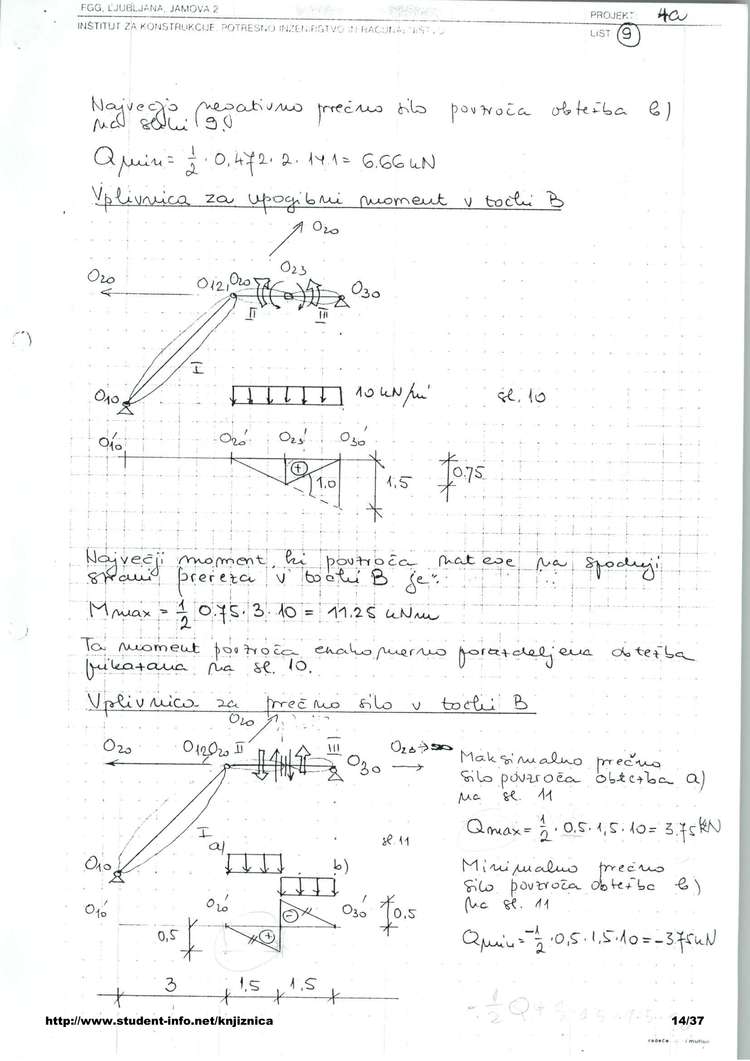 FGG, LJUBLJANA, JAMOVA 2
INŠTITUT ZA KONSTRUKCIJE, POTRESNO INŽENIRSTVO IN RAČUNALNIŠTVO
PROJEKT 4a
LIST 9
Največjo negativno prečno silo povzroča obtežba b)
na sliki 9.
Qmin = 1/2 · 0,472 · 2 · 14.1 = 6.66 kN
Vplivnica za upogibni moment v točki B
O20
O20 O12 O20 O23 O30
II III
I
O10
10 kN/m' sl. 10
O10' O20' O23' O30'
+ 1,0 1,5 0.75
Največji moment, ki povzroča natege na spodnji
strani prereza v točki B je:
Mmax = 1/2 0.75 · 3 · 10 = 11.25 kNm
Ta moment povzroča enakomerno porazdeljena obtežba
prikazana na sl. 10.
Vplivnica za prečno silo v točki B
O20
O20 O12 O20 II III O30 O23→∞
I
O10
a) b) sl. 11
O10' O20' O30'
0,5 + − 0,5
3 1.5 1.5
Maksimalno prečno
silo povzroča obtežba a)
na sl. 11
Qmax = 1/2 · 0.5 · 1,5 · 10 = 3.75 kN
Minimalno prečno
silo povzroča obtežba b)
na sl. 11
Qmin = -1/2 · 0,5 · 1.5 · 10 = -3.75 kN
http://www.student-info.net/knjiznica
14/37